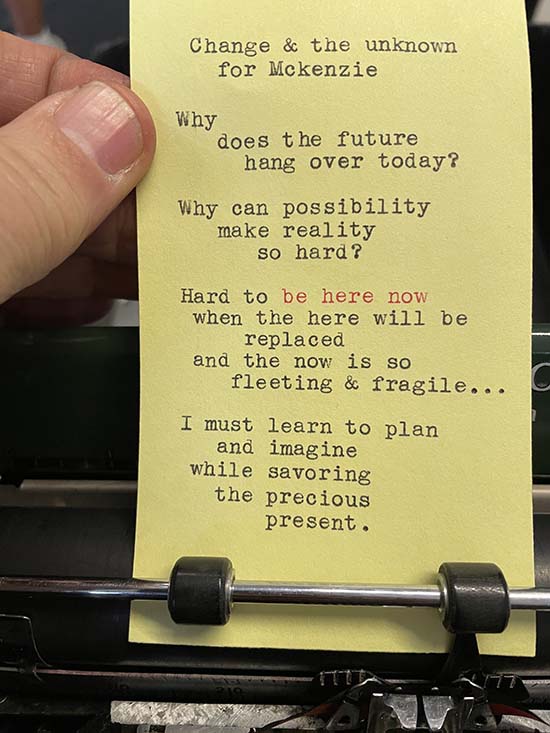 Change & the unknown
for Mckenzie
Why
does the future
hang over today?
Why can possibility
make reality
so hard?
Hard to be here now
when the here will be
replaced
and the now is so
fleeting & fragile...
I must learn to plan
and imagine
while savoring
the precious
present.